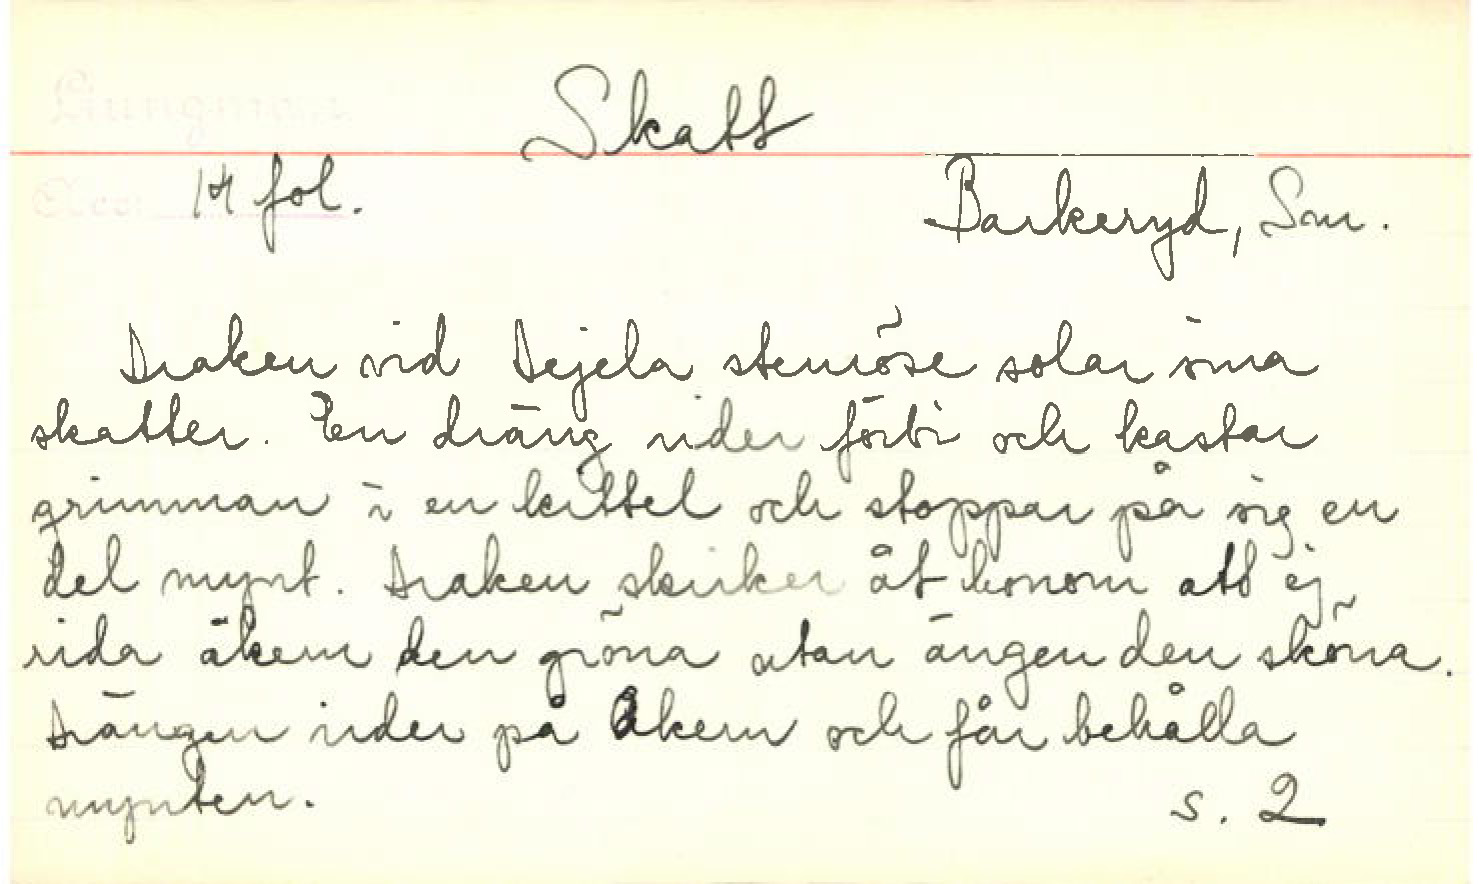 Ljungman
Skatt
Acc:
14 fol.
Barkeryd, Sm.
Draken vid Dejela stenröse solar sina
skatter. En dräng rider förbi och kastar
grimman i en kittel och stoppar på sig en
del mynt. Draken skriker åt honom att ej
rida åkern den gröna utan ängen den sköna.
Drängen rider på åkern och får behålla
mynten.
s. 2